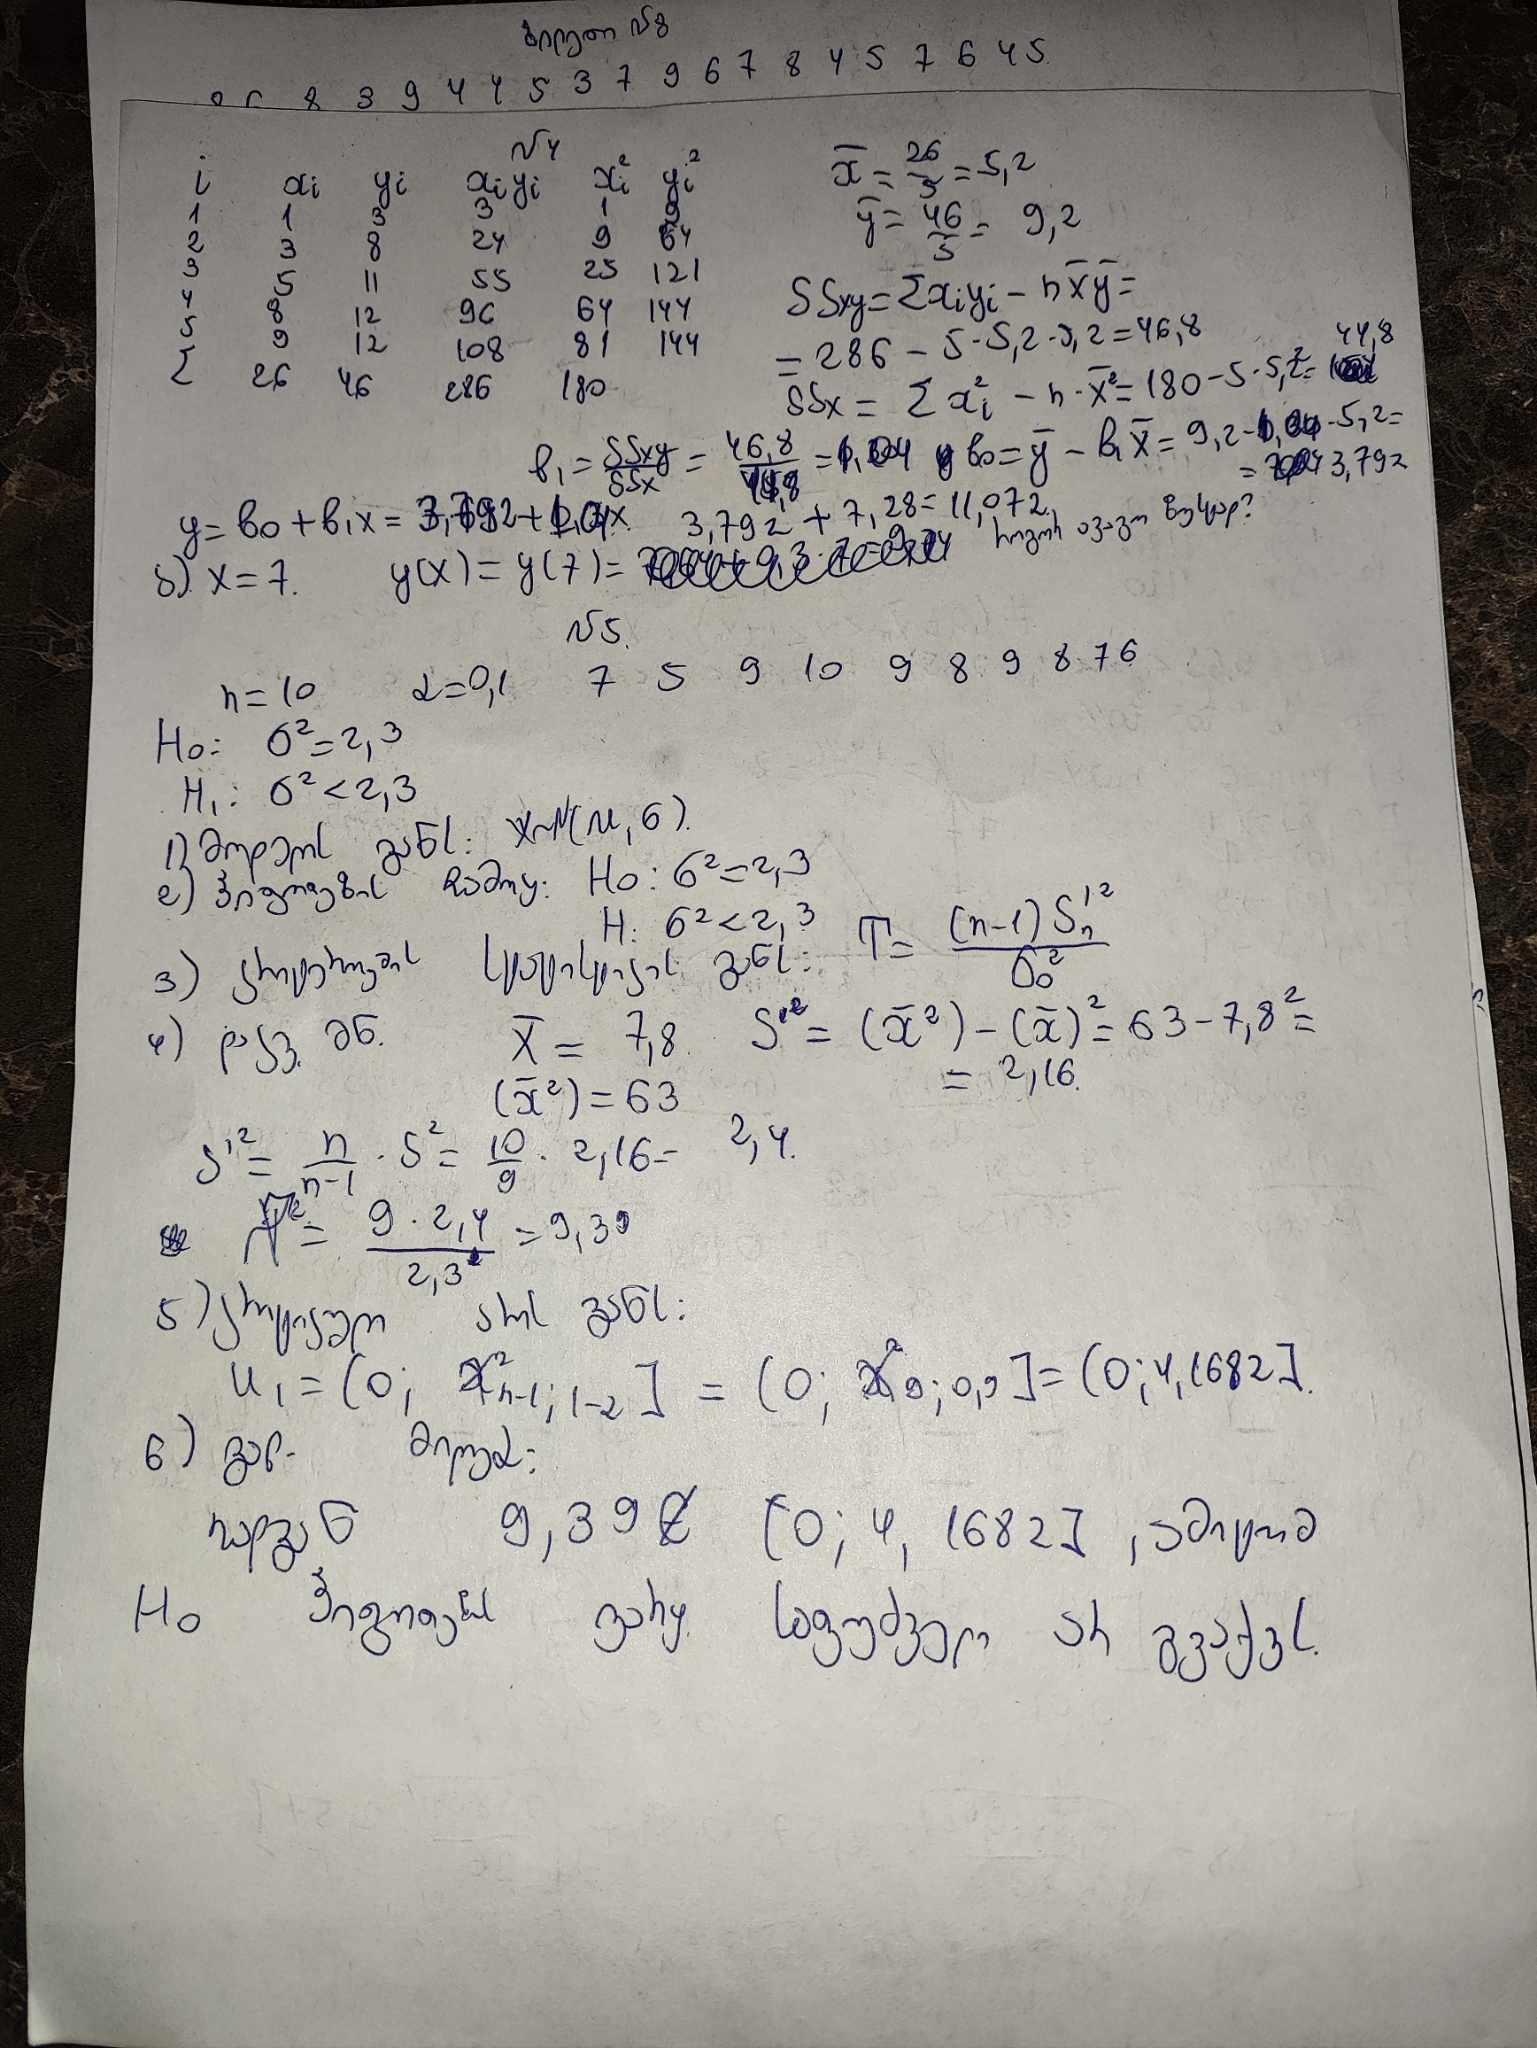 ბილეთი №8
8 3 9 4 4 5 3 7 9 6 7 8 4 5 7 6 4 5
№4
i xi yi xiyi xi² yi²
1 1 3 3 1 9
2 3 8 24 9 64
3 5 11 55 25 121
4 8 12 96 64 144
5 9 12 108 81 144
Σ 26 46 286 180
x̄ = 26/5 = 5,2
ȳ = 46/5 = 9,2
SSxy = Σxiyi - n x̄ȳ =
= 286 - 5·5,2·9,2 = 46,8
SSx = Σxi² - n·x̄² = 180 - 5·5,2² = 44,8
b₁ = SSxy/SSx = 46,8/44,8 = 1,04 b₀ = ȳ - b₁x̄ = 9,2 - 1,04·5,2 =
= 3,792
y = b₀ + b₁x = 3,792 + 1,04x. 3,792 + 7,28 = 11,072.
ბ) x = 7. y(x) = y(7) = როგორ ავაგო
№5.
n = 10 α = 0,1 7 5 9 10 9 8 9 8 7 6
H₀: σ² = 2,3
H₁: σ² < 2,3
1) მოდელის განს: X~N(μ, σ).
2) ჰიპოთეზის ჩამოყ: H₀: σ² = 2,3
H: σ² < 2,3
3) კრიტერიუმის სტატისტიკის განს: T = (n-1) Sn'²/σ₀²
4) დაკვ. მნ. x̄ = 7,8. S'² = (x̄²) - (x̄)² = 63 - 7,8² =
= 2,16.
(x̄²) = 63
S'² = n/n-1 · S² = 10/9 · 2,16 = 2,4.
= 9·2,4/2,3 = 9,39
5) კრიტიკული არის განს:
U₁ = (0; χ²n-1;1-α] = (0; χ²9;0,9] = (0; 4,1682].
6) გად. მიღება:
რადგან 9,39 ∉ [0; 4,1682], ამიტომ
H₀ ჰიპოთეზის უარყ. საფუძველი არ გვაქვს.